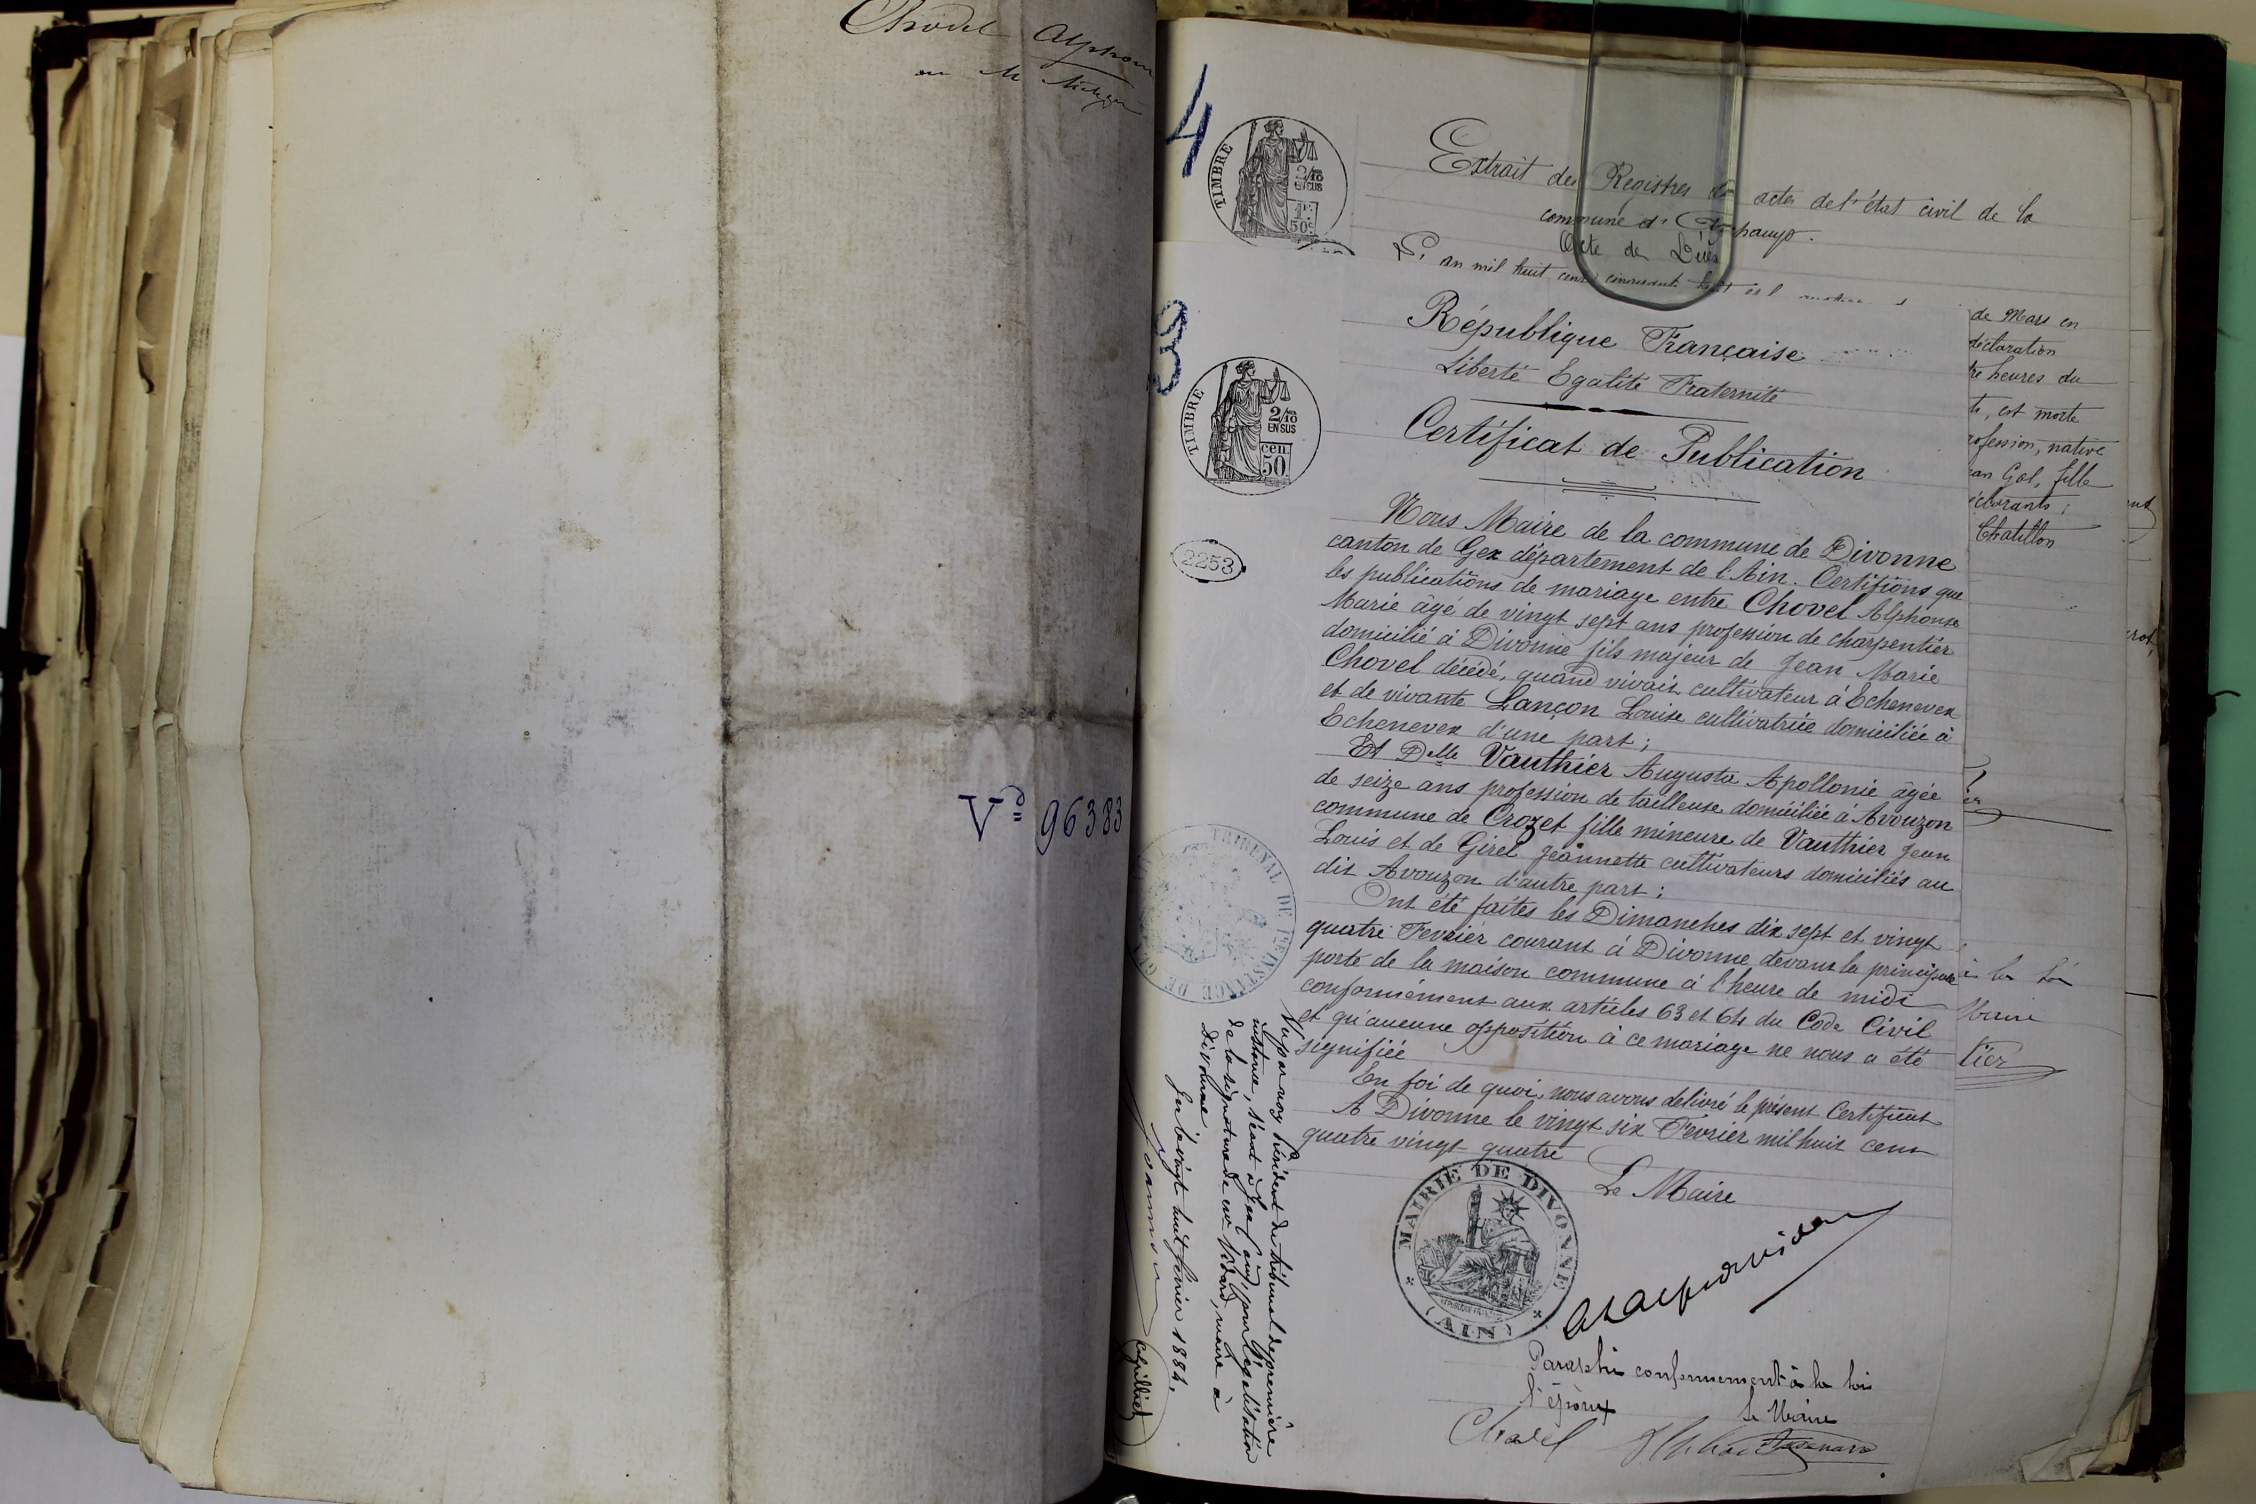 Chovel Alphonse
Vd 96383
4
TIMBRE
2/10
EN SUS
1F.
50c.
Extrait des Registres des actes de l'état civil de la
commune d'
Acte de Décès
L'an mil huit cent cinquante
de Mars en
déclaration
heures du
est morte
profession, native
Gol, fille
déclarants;
Chatillon
3
TIMBRE
2/10
EN SUS
cen.
50
2253
République Française
Liberté Egalité Fraternité
Certificat de Publication
Nous Maire de la commune de Divonne
canton de Gex département de l'Ain. Certifions que
les publications de mariage entre Chovel Alphonse
Marie âgé de vingt sept ans profession de charpentier
domicilié à Divonne fils majeur de Jean Marie
Chovel décédé, quand vivait cultivateur à Echenevex
et de vivante Lançon Louise cultivatrice domiciliée à
Echenevex d'une part;
Et Delle Vauthier Augusta Apollonie âgée
de seize ans profession de tailleuse domiciliée à Avouzon
commune de Crozet fille mineure de Vauthier Jean
Louis et de Girel Jeannette cultivateurs domiciliés au
dit Avouzon d'autre part;
Ont été faites les Dimanches dix sept et vingt
quatre Fevrier courant à Divonne devant la principale
porte de la maison commune à l'heure de midi
conformément aux articles 63 et 64 du Code Civil
et qu'aucune opposition à ce mariage ne nous a été
signifiée
En foi de quoi, nous avons délivré le présent Certificat
A Divonne le vingt six Fevrier mil huit cent
quatre vingt quatre
Le Maire
MAIRIE DE DIVONNE
(AIN)
Paraphé conformément à la loi
l'époux
le Maire
Chovel
TRIBUNAL DE 1re INSTANCE DE GEX
Vu par nous Président du tribunal de première
instance, séant à Gex (Ain), pour légalisation
de la signature de Mr Vidard, maire à
Divonne
Gex le vingt huit février 1884.
à la loi
Maire